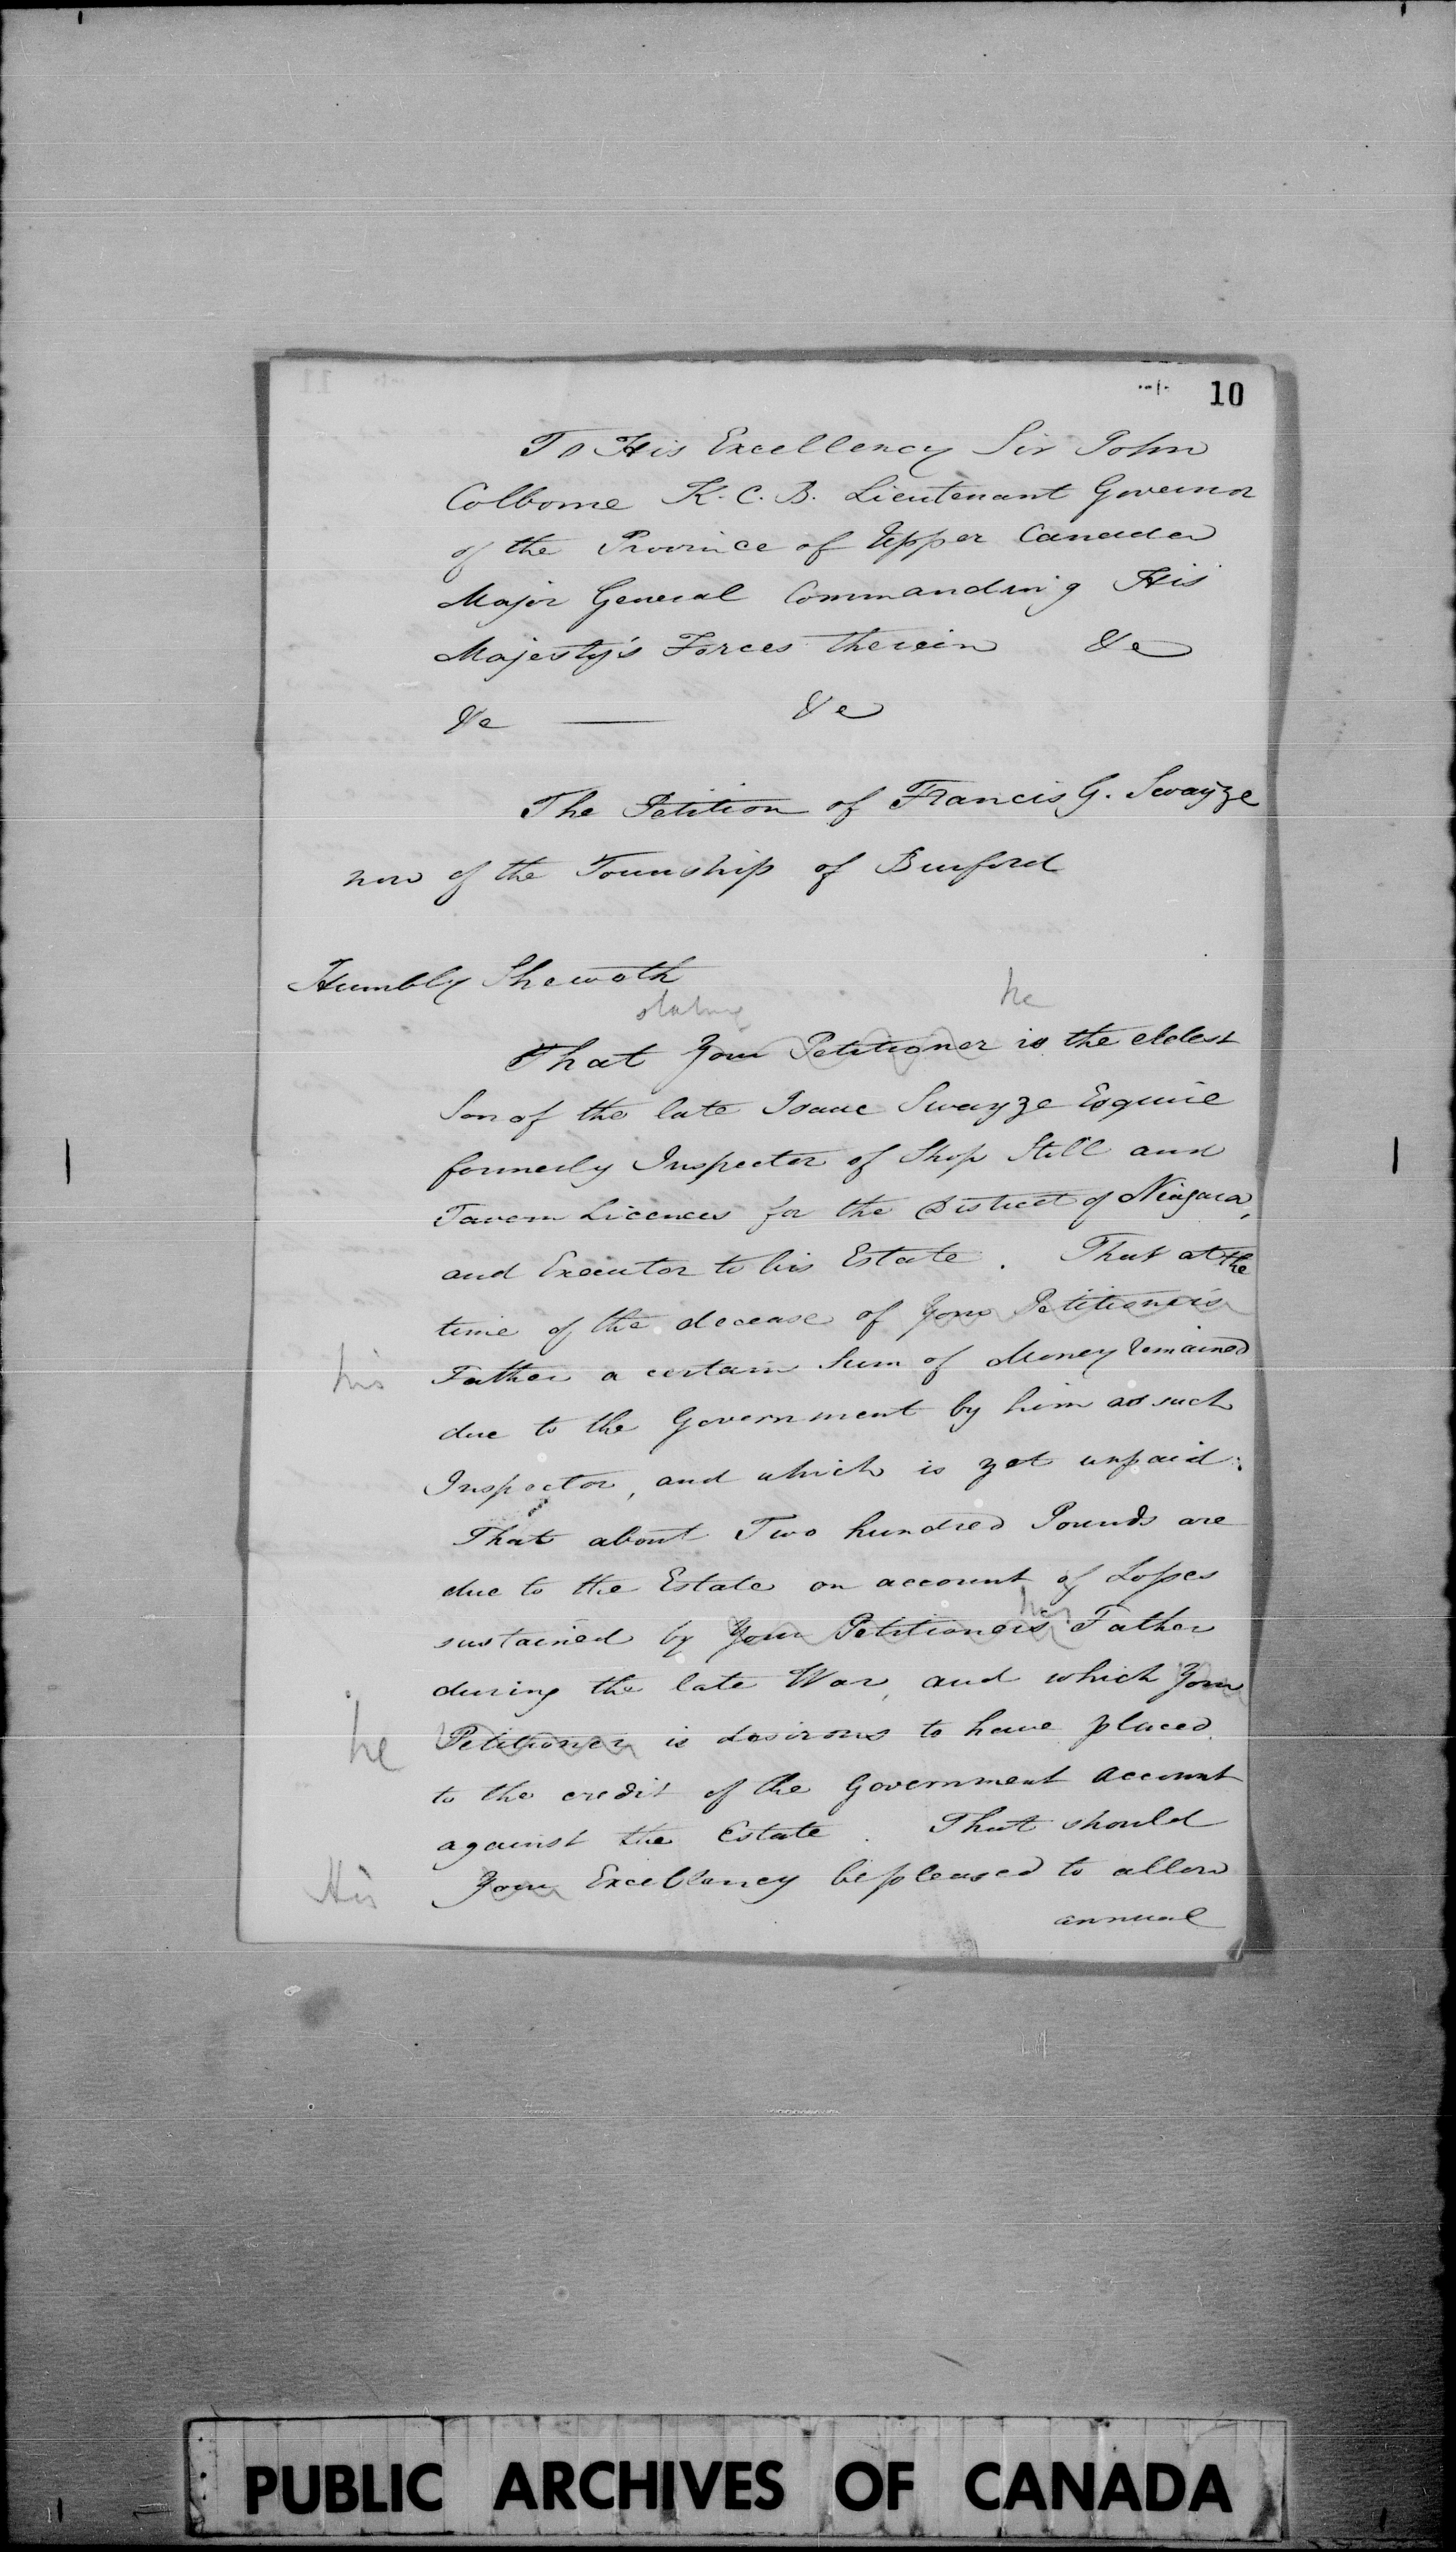 10
To His Excellency Sir John
Colborne K.C.B. Lieutenant Governor
of the Province of Upper Canada
Major General Commanding His
Majesty's Forces therein &c
&c — &c
The Petition of Francis G. Swayze
now of the Township of Burford
Humbly Sheweth
stating he
That Your Petitioner is the eldest
Son of the late Isaac Swayze Esquire
formerly Inspector of Shop Still and
Tavern Licences for the District of Niagara,
and Executor to his Estate. That at the
time of the decease of Your Petitioner's
his Father a certain Sum of Money remained
due to the Government by him as such
Inspector, and which is yet unpaid.
That about Two hundred Pounds are
due to the Estate on account of Losses
his
sustained by Your Petitioners Father
during the late War, and which Your
he Petitioner is desirous to have placed
to the credit of the Government Account
against the Estate. That should
His Your Excellency be pleased to allow
annual
PUBLIC ARCHIVES OF CANADA